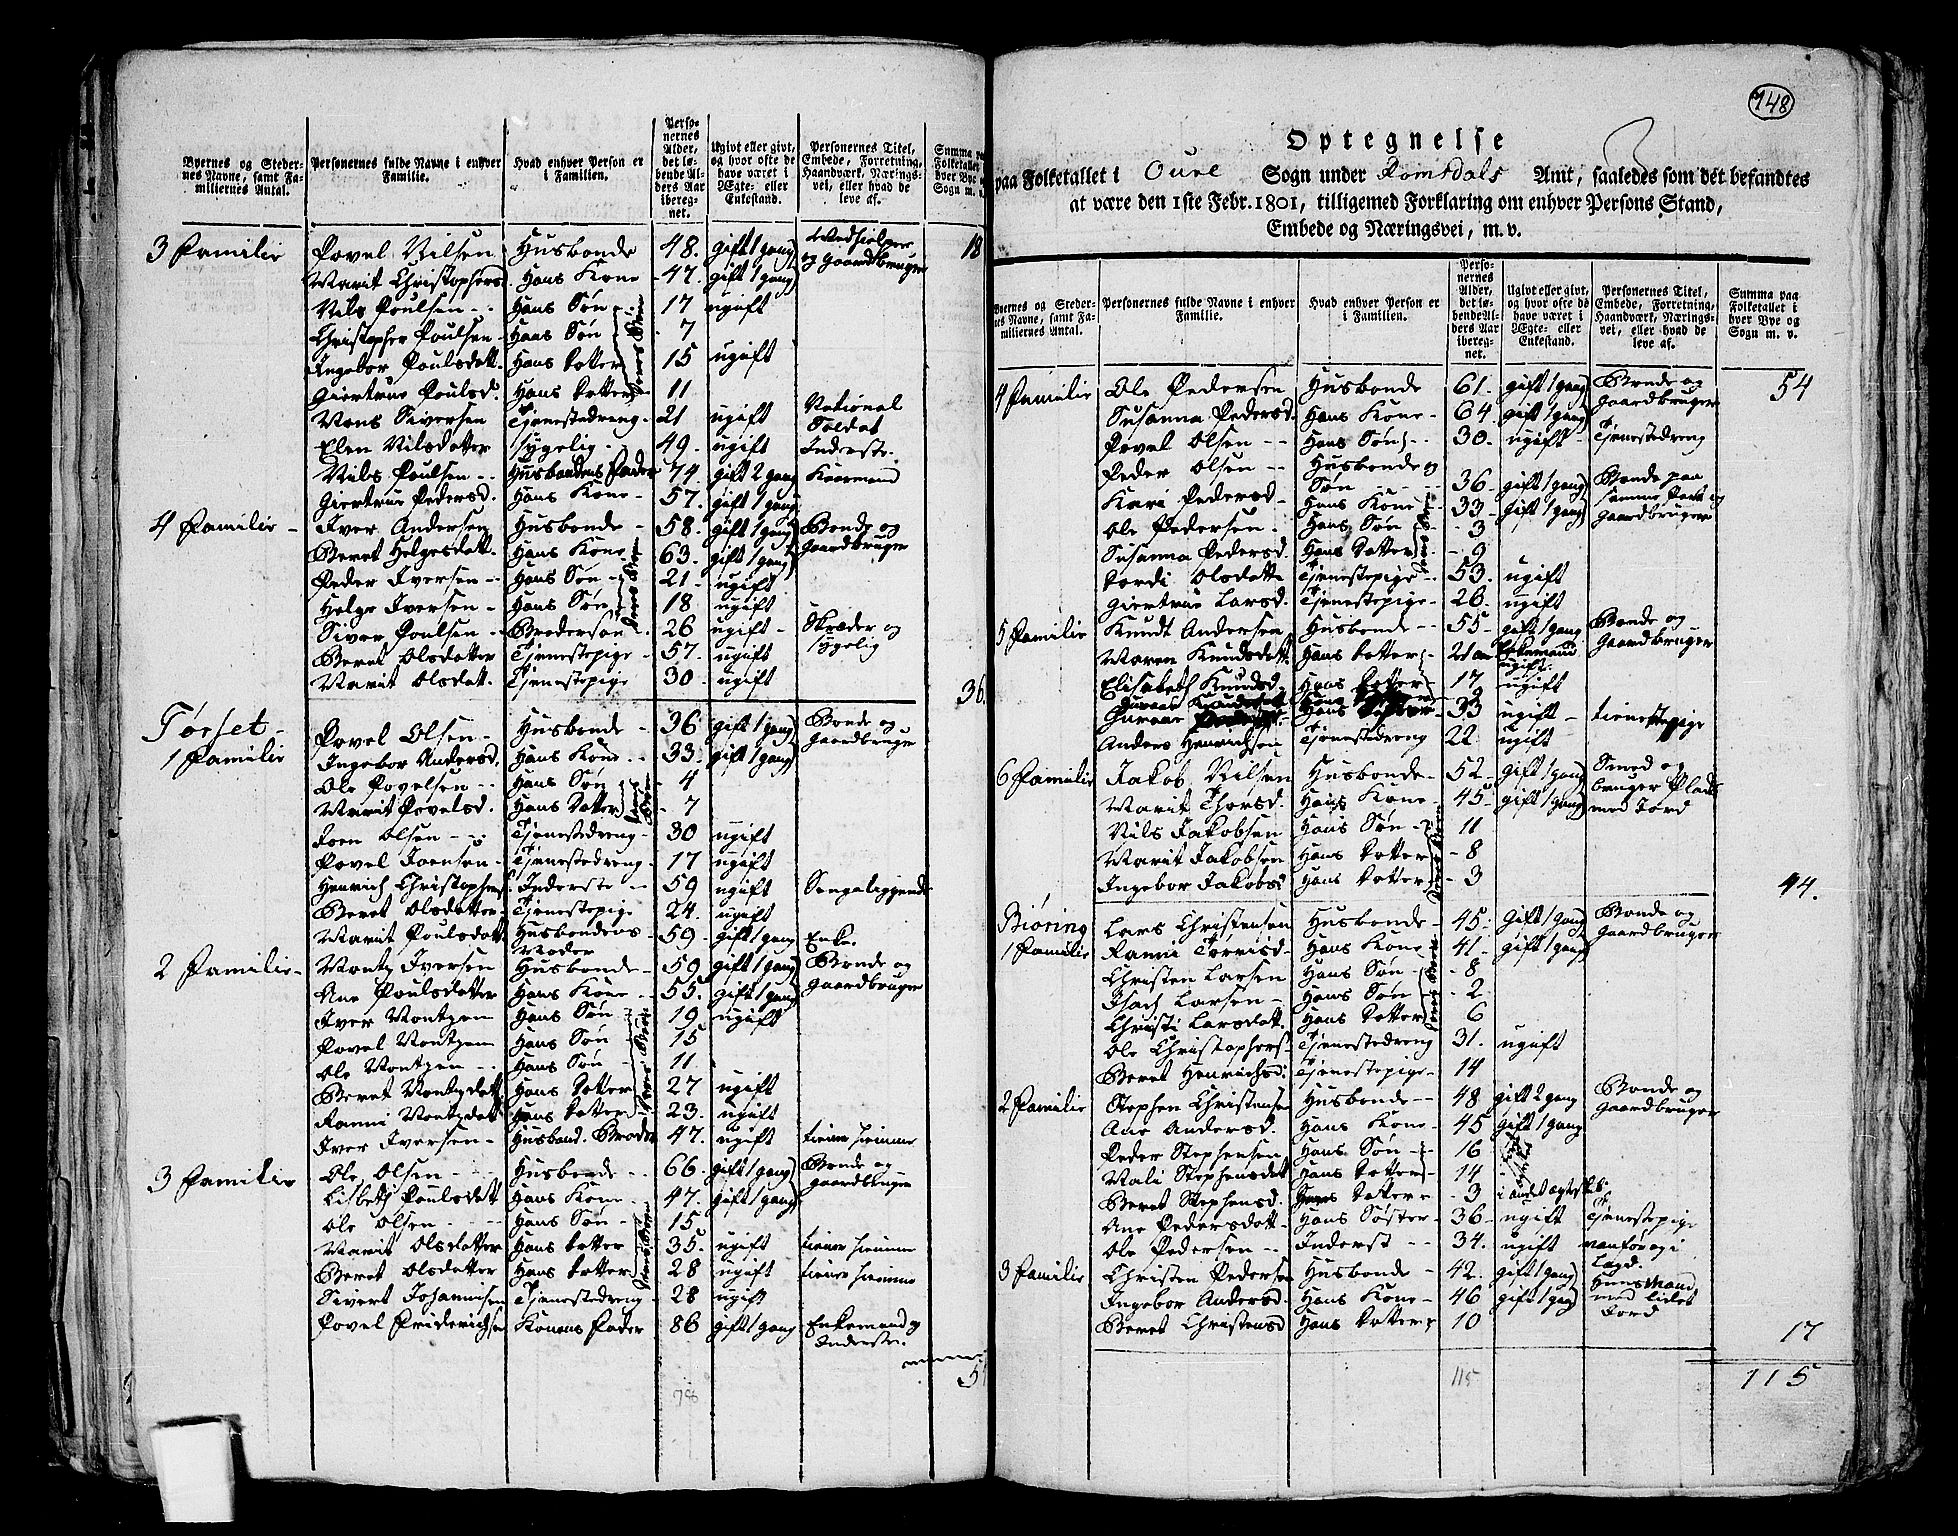 Byernes og Steder-
nes Navne, samt Fa-
miliernes Antal.
Personernes fulde Navne i enhver
Familie.
Hvad enhver Person er
i Familien.
Perso-
nernes
Alder,
det lø-
bende Al-
ders Aar
iberegn-
net.
Ugivt eller givt,
og hvor ofte de
have været i
Ægte- eller
Enkestand.
Personernes Titel,
Embede, Forretning,
Haandværk, Nærings-
vei, eller hvad de
leve af.
Summa paa
Folketallet
hver Bye
Sogn m.
3 Familie Povel Nilsen Husbonde 48. gift 1 gang Medhielper og Gaardbruger 18
Marit Christophersd. Hans Kone 47. gift 1 gang
Nils Poulsen Hans Søn 17 ugift
Christopher Poulsen Hans Søn 7
Ingebor Poulsdatt. Hans Dotter 15 ugift
Giertrue Poulsd. Hans Dotter 11
Mons Siversen Tjenestedreng 21 ugift National Soldat
Elen Nilsdatter sygelig 49. ugift Inderste.
Nils Poulsen Husbondens Fader 74. gift 2 gang Kaarmand
Giertrue Pedersd. Hans Kone 57. gift 1 gang
4 Familie Iver Andersen Husbonde 58. gift 1 gang Bonde og Gaardbruger
Beret Helgesdatt. Hans Kone 63. gift 1 gang
Peder Iversen Hans Søn 21 ugift
Helge Iversen Hans Søn 18 ugift
Siver Poulsen Brodersøn 26 ugift Skreder og sygelig
Beret Olsdatter Tjenestepige 57. ugift
Marit Olsdatt. Tjenestepige 30. ugift
36.
Torset
1 Familie Povel Olsen Husbonde 36 gift 1 gang Bonde og Gaardbruger
Ingebor Andersd. Hans Kone 33 gift 1 gang
Ole Povelsen Hans Søn 4
Marit Povelsd. Hans Dotter 7
Joen Olsen Tjenestedreng 30 ugift
Povel Joensen Tjenestedreng 17 ugift
Henrich Christophers. Inderste 59 ugift Sengeliggende
Beret Olsdatter Tjenestepige 24. ugift
Marit Poulsdatt. Husbondens Moder 59 gift 1 gang Enke.
2 Familie Montz Iversen Husbonde 59 gift 1 gang Bonde og Gaardbruger
Ane Poulsdatter Hans Kone 55. gift 1 gang
Iver Montzen Hans Søn 19 ugift
Povel Montzen Hans Søn 15
Ole Montzen Hans Søn 11
Beret Montzdatt. Hans Dotter 27 ugift
Ranni Montzdatt. Hans Dotter 23. ugift
Iver Iversen Husbond. Broder 47. ugift tiener hiemme
3 Familie Ole Olsen Husbonde 66 gift 1 gang Bonde og Gaardbruger
Lisbeth Poulsdatt. Hans Kone 47. gift 1 gang
Ole Olsen Hans Søn 15
Marit Olsdatter Hans Dotter 35. ugift tiener hiemme
Beret Olsdatter Hans Dotter 28 ugift tiener hiemme
Sivert Johannisen Tjenestedreng 28 ugift
Povel Friderichsen Konens Fader 86 gift 1 gang Enkemand og Inderste.
78
148
Optegnelse
paa Folketallet i Oure Sogn under Romsdals Amt, saaledes som det befandtes
at være den 1ste Febr. 1801, tilligemed Forklaring om enhver Persons Stand,
Embede og Næringsvei, m.v.
Byernes og Steder-
nes Navne, samt Fa-
miliernes Antal.
Personernes fulde Navne i enhver
Familie.
Hvad enhver Person er
i Familien.
Perso-
nernes
Alder,
det lø-
bende Al-
ders Aar
iberegn-
net.
Ugivt eller givt,
og hvor ofte de
have været i
Ægte- eller
Enkestand.
Personernes Titel,
Embede, Forretning,
Haandværk, Nærings-
vei, eller hvad de
leve af.
Summa paa
Folketallet i
hver Bye og
Sogn m. v.
4 Familie Ole Pedersen Husbonde 61. gift 1 gang Bonde og Gaardbruger 54
Susanna Pedersd. Hans Kone 64. gift 1 gang
Povel Olsen Hans Søn 30. ugift Tjenestedreng
Peder Olsen Husbonde og Søn 36 gift 1 gang Bonde paa samme Part og Gaardbruger
Kari Pedersd. Hans Kone 33 gift 1 gang
Ole Pedersen Hans Søn 3
Susanna Pedersd. Hans Dotter 9
Dordi Olsdatter Tjenestepige 53. ugift
Giertrue Larsd. Tjenestepige 26 ugift
5 Familie Knudt Andersen Husbonde 55 gift 1 gang Enkemand Bonde og Gaardbruger
Maren Knudsdatt. Hans Dotter ugift
Elisabeth Knudsd. Hans Dotter 17 ugift
Guroe Hans 33 ugift tienestepige
Anders Henrichsen Tjenestedreng 22 ugift
6 Familie Jakob Nilsen Husbonde 52 gift 1 gang Smed og bruger Plads med Jord
Marit Thorsd. Hans Kone 45 gift 1 gang
Nils Jakobsen Hans Søn 11
Marit Jakobsen Hans Dotter 8
Ingebor Jakobsd. Hans Dotter 3
44.
Biøring
1 Familie Lars Christensen Husbonde 45. gift 1 gang Bonde og Gaardbruger
Ranni Torrisd. Hans Kone 41. gift 1 gang
Christen Larsen Hans Søn 8
Isach Larsen Hans Søn 2
Christi Larsdatt. Hans Dotter 6
Ole Christophers. Tjenestedreng 31. ugift
Beret Henrichsd. Tjenestepige 14
2 Familie Stephen Christensen Husbonde 48 gift 2 gang Bonde og Gaardbruger
Ane Andersd. Hans Kone 45 gift 1 gang
Peder Stephensen Hans Søn 16
Mali Stephensdat. Hans Dotter 14
Beret Stephensd. Hans Dotter 3 i andet ægteskab
Ane Pedersdatt. Hans Søster 36 ugift Tjenestepige
Ole Pedersen Inderst 34. ugift vanfør og i Lægd.
3 Familie Christen Pedersen Husbonde 42. gift 1 gang Huusmand med lidet Jord
Ingebor Andersd. Hans Kone 46 gift 1 gang
Beret Christensd. Hans Dotter 10
17
115
115